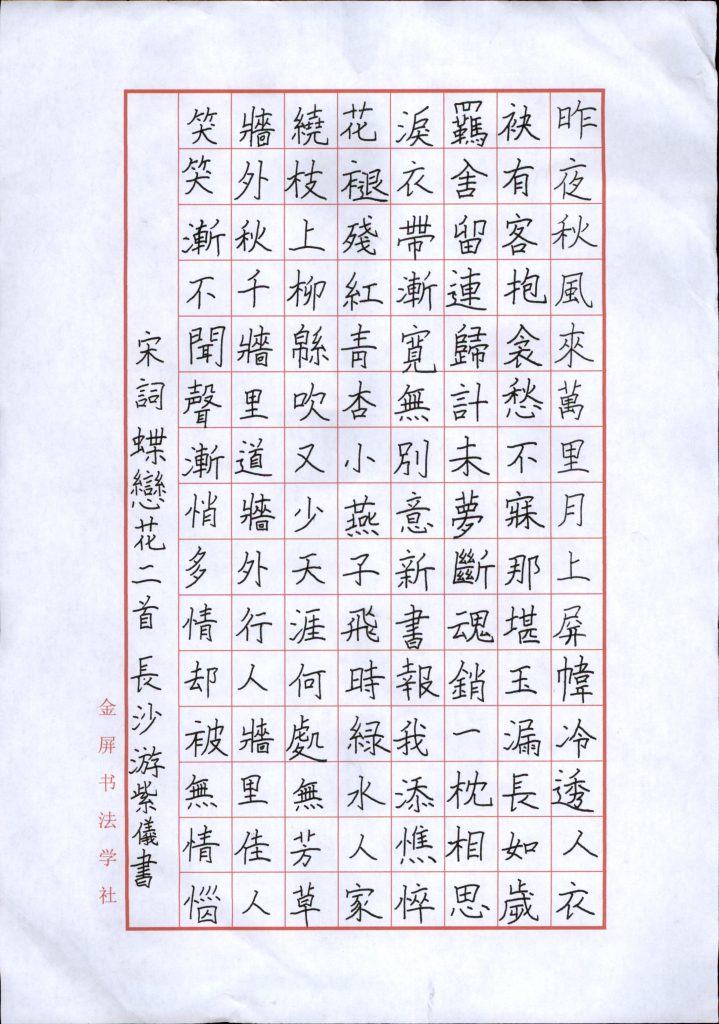 昨夜秋風來萬里月上屏幃冷透人衣
袂有客抱衾愁不寐那堪玉漏長如歲
羈舍留連歸計未夢斷魂銷一枕相思
淚衣帶漸寬無別意新書報我添憔悴
花褪殘紅青杏小燕子飛時緑水人家
繞枝上柳緜吹又少天涯何處無芳草
牆外秋千牆里道牆外行人牆里佳人
笑笑漸不聞聲漸悄多情却被無情惱
宋詞蝶戀花二首 長沙游紫儀書
金屏书法学社